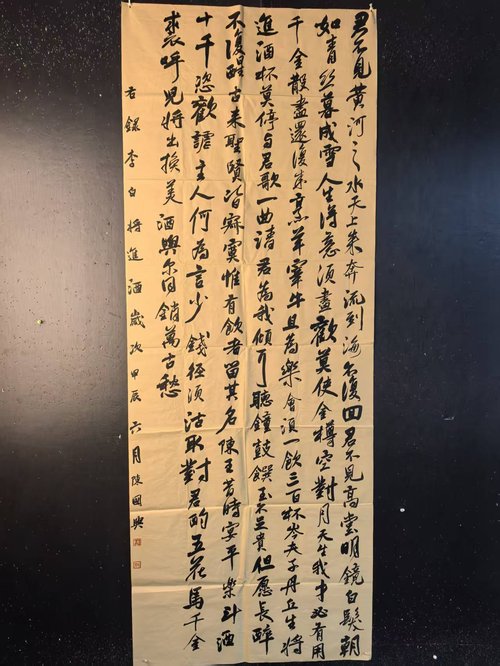 君不見黃河之水天上來奔流到海不復回君不見高堂明鏡白髮朝
如青絲暮成雪人生得意須盡歡莫使金樽空對月天生我才必有用
千金散盡還復來烹羊宰牛且為樂會須一飲三百杯岑夫子丹丘生將
進酒杯莫停与君歌一曲請君為我傾耳聽鐘鼓饌玉不足貴但愿長醉
不復醒古來聖賢皆寂寞惟有飲者留其名陳王昔時宴平樂斗酒
十千恣歡謔主人何為言少錢徑須沽取對君酌五花馬千金
裘呼兒將出換美酒與爾同銷萬古愁
右錄李白將進酒歲次甲辰六月陳國興